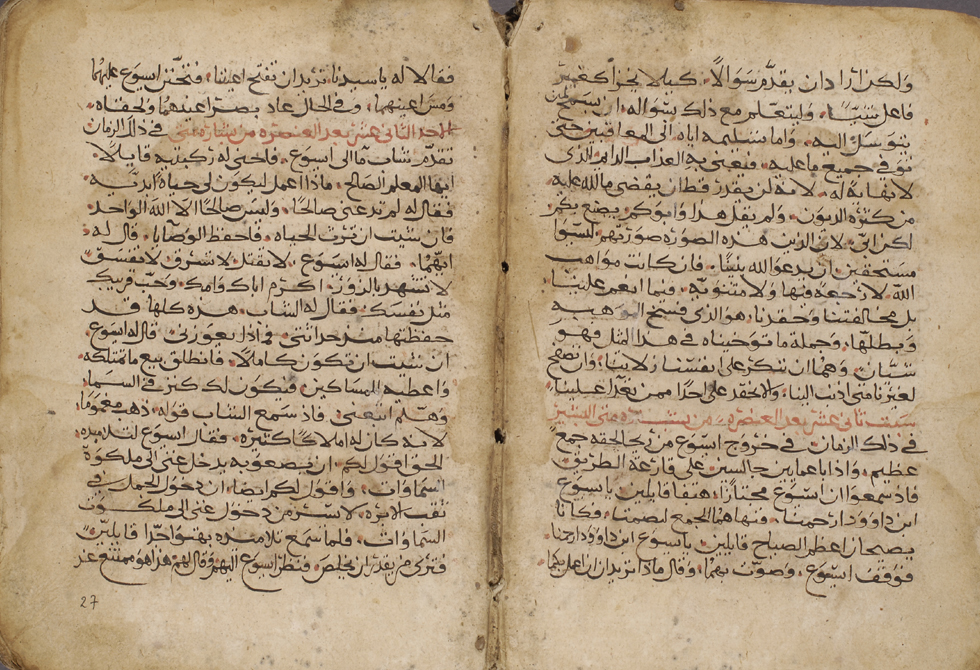 ولكن اراد ان يقدم سوالاً كيلا يجزا كغير
فاعل شيئًا وليتعلم مع ذلك سواله ان يسمح لمن
يتوسل اليه واما تسليمه اياه الى المعاقبين حتى
توفى جميع ما عليه فيعنى به العذاب الدايم الذى
لا نهاية له لانه لن يقدر قط ان يقضى ما لله عليه
من كثرة الديون ولم يقل هذا وابوكم يصنع بكم
لكن ابى لان الذين هذه الصوره صورتهم ليسوا
مستحقين ان يدعوا الله بنينًا فان كانت مواهب
الله لا رجعة فيها ولا مثنويه فيما انعم علينا
بل مخالفتنا وحقدنا هو الذى فسخ الموهبه
وبطلها وجملة ما توخيناه فى هذا المثل فهو
شيئان وهما ان نتكر على انفسنا زلاتنا وان نصفح
لغيرنا متى اذنب الينا ولا نحقد على احدًا ممن يعتدا علينا
سبت ثانى عشر بعد العنصره من بشارة متى البشير
فى ذلك الزمان فى خروج ايسوع من ريحا لحقه جمع
عظيم واذا باعمايين جالسين على قارعة الطريق
فاذ سمعوا ان ايسوع مجتازًا هتفا قايلين يا ايسوع
ابن داوود ارحمنا فنهاهما الجمع ليصمتا فكانا
يصيحان اعظم الصياح قايلين يا يسوع ابن داوود ارحمنا
فوقف ايسوع وصوت بهما وقال ماذا تريدان ان اعمل بكما
فقالا له يا سيدنا نريد ان تفتح اعيننا فتحنن ايسوع عليهما
ومس اعينهما وفى الحال عاد بصر اعينهما ولحقاه
الاحد الثانى عشر بعد العنصره من بشارة متى فى ذلك الزمان
تقدم شاب ما الى ايسوع فاحنى له ركبتيه قايلاً
ايها المعلم الصالح ماذا اعمل ليكون لى حياة ابديه
فقال له لم تدعنى صالحًا وليس صالحًا الا الله الواحد
فان شيت ان ترث الحياه فاحفظ الوصايا قال له
ايهما فقال له ايسوع لا تقتل لا تسرق لا تفسق
لا تشهد بالزور اكرم اباك وامك وحب قريبك
مثل نفسك فقال له الشاب هذه كلها قد
حفظتها منذ حداثتى فماذا يعوزنى قال له ايسوع
ان شيت ان تكون كاملاً فانطلق بيع ما تمتلكه
واعطيه المساكين فيكون لك كنز فى السما
وهلم اتبعنى فاذ سمع الشاب قوله ذهب مغمومًا
لانه كان له املاكًا كثيره فقال ايسوع لتلاميذه
الحق اقول لكم ان بصعوبه يدخل غنى الى ملكوة
السماوات واقول لكم ايضا ان دخول الجمل فى
ثقب الابره لايسر من دخول غنى الى ملكوت
السماوات فلما سمع تلاميذه بهتوا جدًا قايلين
فترى من يقدر ان يخلص فنظر ايسوع اليهم وقال لهم هذا هو ممتنع عند
27